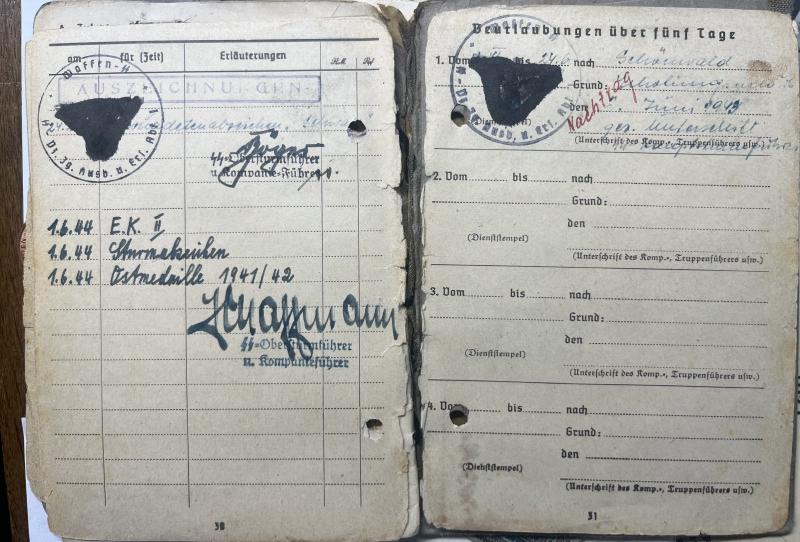 am für (Zeit) Erläuterungen
Waffen-SS
AUSZEICHNUNGEN
Ausb. u. Ers. Abt.
SS-Obersturmführer
u. Kompanie-Führer
1.6.44 E.K. II
1.6.44 Sturmabzeichen
1.6.44 Ostmedaille 1941/42
SS-Obersturmführer
u. Kompanieführer
30
Beurlaubungen über fünf Tage
Waffen-SS
Ausb. u. Ers. Abt.
1. Vom bis nach Schönwald
Grund: Erholung
Nachtrag
den Juni 1943
(Dienststempel) gez. Unterschrift
(Unterschrift des Komp.-, Truppenführers usw.)
2. Vom bis nach
Grund:
den
(Dienststempel)
(Unterschrift des Komp.-, Truppenführers usw.)
3. Vom bis nach
Grund:
den
(Dienststempel)
(Unterschrift des Komp.-, Truppenführers usw.)
4. Vom bis nach
Grund:
den
(Dienststempel)
(Unterschrift des Komp.-, Truppenführers usw.)
31